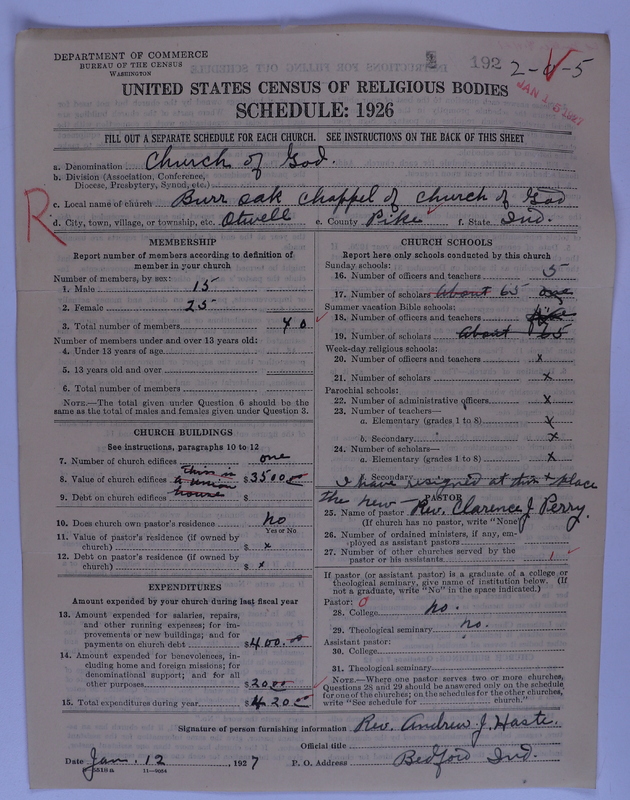 DEPARTMENT OF COMMERCE
BUREAU OF THE CENSUS
WASHINGTON
192
2-0-5
JAN 15 1927
UNITED STATES CENSUS OF RELIGIOUS BODIES
SCHEDULE: 1926
FILL OUT A SEPARATE SCHEDULE FOR EACH CHURCH. SEE INSTRUCTIONS ON THE BACK OF THIS SHEET
a. Denomination Church of God.
b. Division (Association, Conference,
Diocese, Presbytery, Synod, etc.)
c. Local name of church Burr oak chappel of church of God
R
d. City, town, village, or township, etc. Otwell e. County Pike f. State Ind.
MEMBERSHIP
Report number of members according to definition of
member in your church
Number of members, by sex:
1. Male 15
2. Female 25
3. Total number of members 40
Number of members under and over 13 years old:
4. Under 13 years of age
5. 13 years old and over
6. Total number of members
NOTE.—The total given under Question 6 should be the
same as the total of males and females given under Question 3.
CHURCH BUILDINGS
See instructions, paragraphs 10 to 12
7. Number of church edifices one
8. Value of church edifices this is a union $3500.00
9. Debt on church edifices house $
10. Does church own pastor's residence No
Yes or No
11. Value of pastor's residence (if owned by
church) $ x
12. Debt on pastor's residence (if owned by
church) $ x
EXPENDITURES
Amount expended by your church during last fiscal year
13. Amount expended for salaries, repairs,
and other running expenses; for im-
provements or new buildings; and for
payments on church debt $400.00
14. Amount expended for benevolences, in-
cluding home and foreign missions; for
denominational support; and for all
other purposes $20.00
15. Total expenditures during year $420.00
CHURCH SCHOOLS
Report here only schools conducted by this church
Sunday schools:
16. Number of officers and teachers 5
17. Number of scholars About 65
Summer vacation Bible schools:
18. Number of officers and teachers
19. Number of scholars About 65
Week-day religious schools:
20. Number of officers and teachers x
21. Number of scholars x
Parochial schools:
22. Number of administrative officers x
23. Number of teachers—
a. Elementary (grades 1 to 8) x
b. Secondary x
24. Number of scholars—
a. Elementary (grades 1 to 8) x
b. Secondary
I have resigned at this place
the new—
PASTOR
25. Name of pastor Rev. Clarence J Perry.
(If church has no pastor, write "None")
26. Number of ordained ministers, if any, em-
ployed as assistant pastors
27. Number of other churches served by the
pastor or his assistants 1
If pastor (or assistant pastor) is a graduate of a college or
theological seminary, give name of institution below. (If
not a graduate, write "No" in the space indicated.)
Pastor: 0
28. College no.
29. Theological seminary no.
Assistant pastor:
30. College
31. Theological seminary
NOTE.—Where one pastor serves two or more churches,
Questions 28 and 29 should be answered only on the schedule
for one of the churches; on the schedules for the other churches,
write "See schedule for church."
Signature of person furnishing information Rev. Andrew J. Haste.
Official title
Date Jan. 12, 1927 P. O. Address Bedford Ind.
11—9054